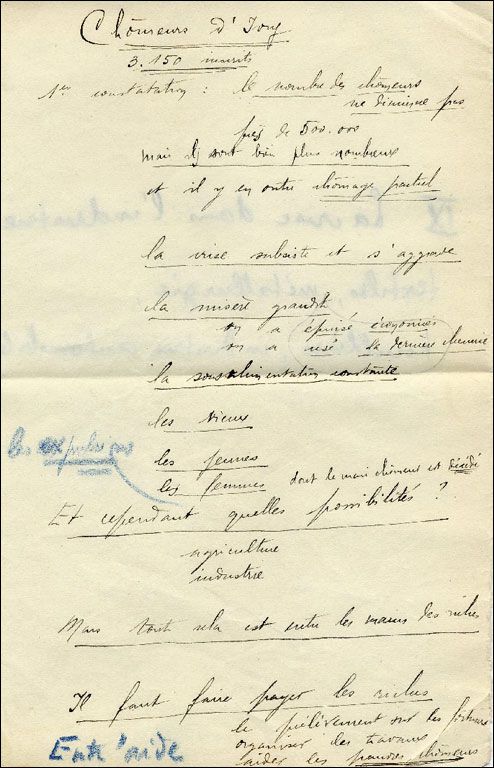 Chômeurs d'Ivry
3.150 inscrits
1ère constatation : le nombre des chômeurs
ne diminue pas
près de 500.000
mais ils sont bien plus nombreux
et il y en outre chômage partiel
la crise subsiste et s'aggrave
la misère grandit
on a épuisé économies
on a usé sa dernière chemise
la sous alimentation constante
les vieux
les expulsions
les jeunes
les femmes dont le mari chômeur est décédé
Et cependant quelles possibilités ?
agriculture
industrie
Mais tout cela est entre les mains des riches
Il faut faire payer les riches
le prélèvement sur les fortunes
organiser des travaux
aider les pauvres chômeurs
Entr'aide